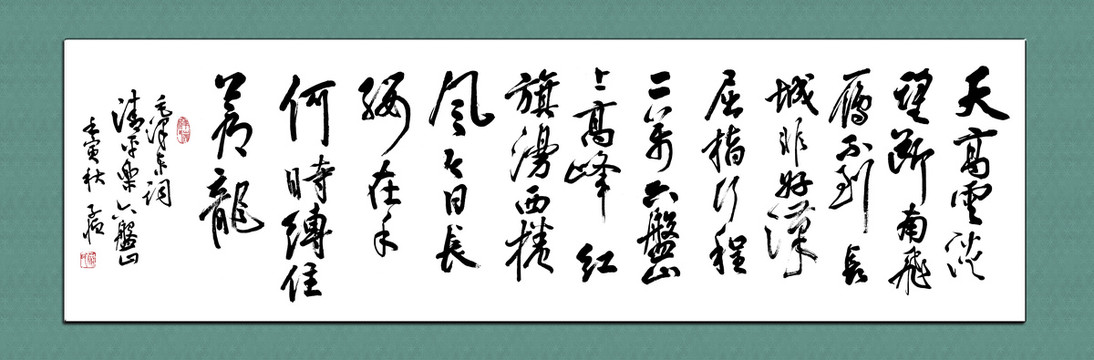 天高雲淡
望斷南飛
雁不到長
城非好漢
屈指行程
二萬六盤山
上高峰紅
旗漫西捲
風今日長
纓在手
何時縛住
蒼龍
毛澤東詞
清平樂六盤山
壬寅秋